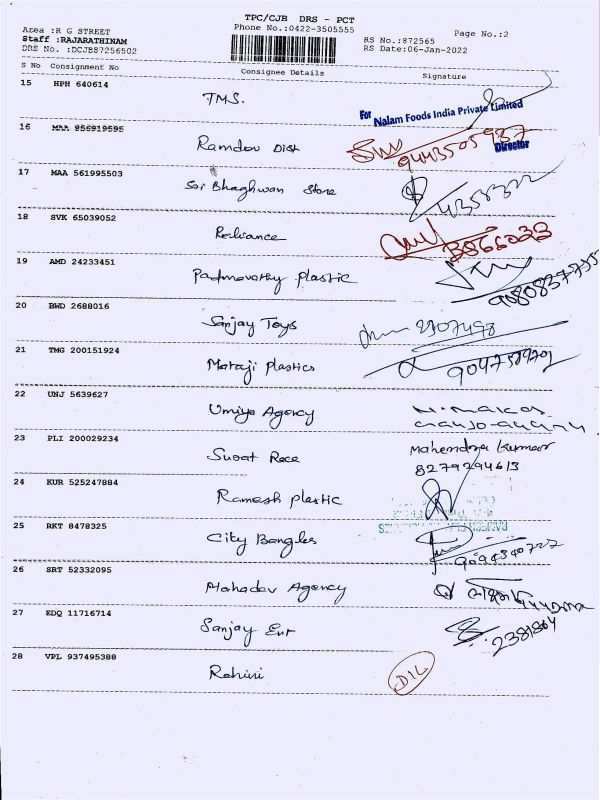 TPC/CJB DRS - PCT
Area :R G STREET
Phone No.:0422-3505555
Page No.:2
Staff :RAJARATHINAM
RS No.:872565
DRS No. :DCJB87256502
RS Date:06-Jan-2022
S No Consignment No Consignee Details Signature
15 HPH 640614 TMS.
For Nalam Foods India Private Limited
Director
16 MAA 856919595 Ramdev Dist 9443505937
17 MAA 561995503 Sri Bhaghwan Store
18 SVK 65039052 Reliance
19 AMD 24233451 Padmavathy Plastic
20 BWD 2688016 Sanjay Toys
21 TMG 200151924 Mataji Plastics
22 UNJ 5639627 Umiya Agency
23 PLI 200029234 Mahendra Kumar
8279294613
24 KUR 525247884 Ramesh Plastic
25 RKT 8478325 City Bangles
26 SRT 52332095 Mahadev Agency
27 EDQ 11716714 Sanjay Ent 2381864
28 VPL 937495388 Rohini